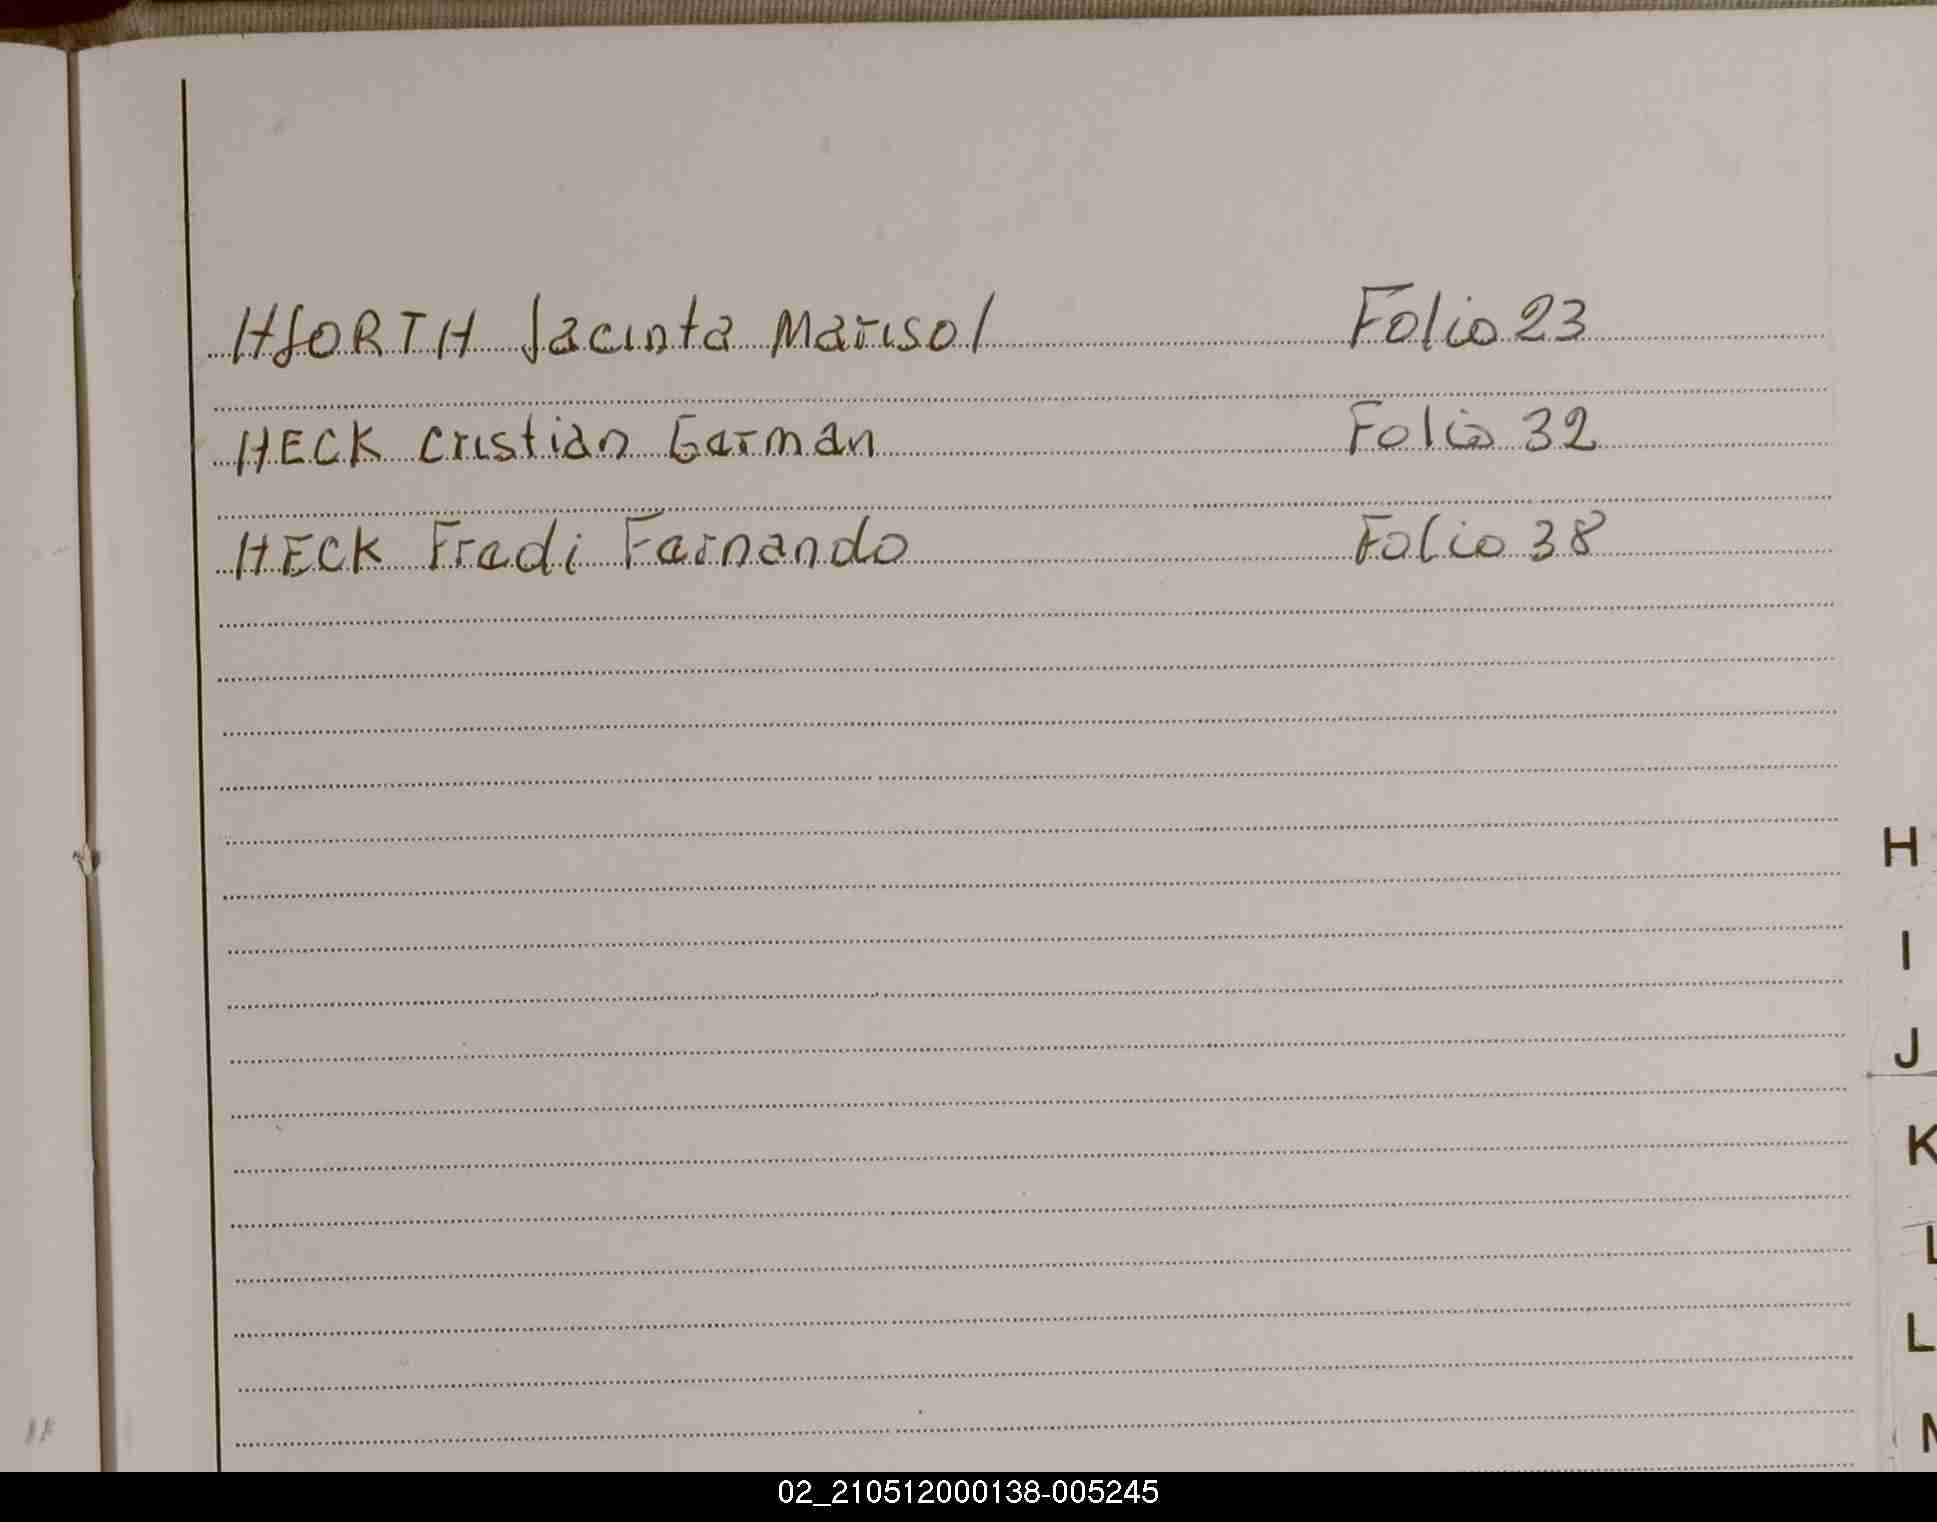 HJORTH Jacinta Marisol Folio 23
HECK Cristian German Folio 32
HECK Fredi Fernando Folio 38
H
I
J
K
L
L
M
02_210512000138-005245